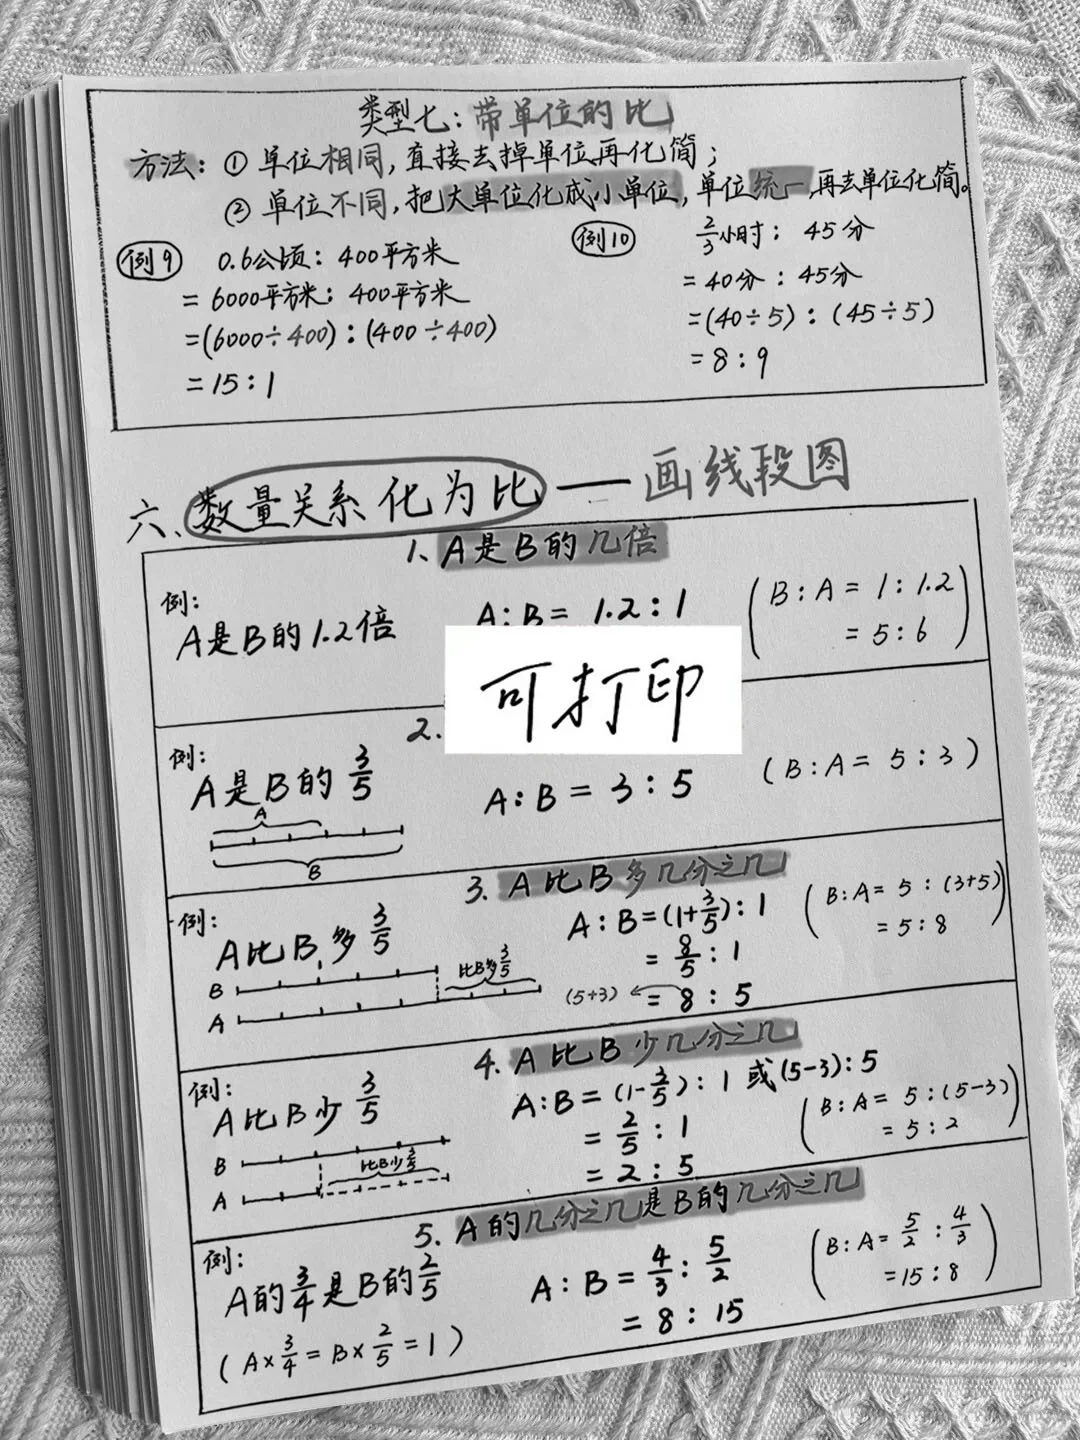 类型七：带单位的比
方法：① 单位相同，直接去掉单位再化简；
② 单位不同，把大单位化成小单位，单位统一，再去单位化简。
例9 0.6公顷：400平方米
= 6000平方米：400平方米
=(6000÷400)：(400÷400)
= 15：1
例10 2/3小时：45分
= 40分：45分
=(40÷5)：(45÷5)
= 8：9
六、数量关系化为比——画线段图
1. A是B的几倍
例：
A是B的1.2倍
A：B = 1.2：1
(B：A = 1：1.2
= 5：6)
可打印
2.
例：
A是B的 3/5
A
B
A：B = 3：5
(B：A = 5：3)
3. A比B多几分之几
例：
A比B多 3/5
B
A
比B多3/5
A：B=(1+3/5)：1
= 8/5：1
(5+3) ← = 8：5
(B：A= 5：(3+5)
= 5：8)
4. A比B少几分之几
例：
A比B少 3/5
B
A
比B少3/5
A：B = (1-3/5)：1 或(5-3)：5
= 2/5：1
= 2：5
(B：A= 5：(5-3)
= 5：2)
5. A的几分之几是B的几分之几
例：
A的3/4是B的2/5
(A×3/4 = B×2/5 = 1)
A：B = 4/3：5/2
= 8：15
(B：A= 5/2：4/3
=15：8)